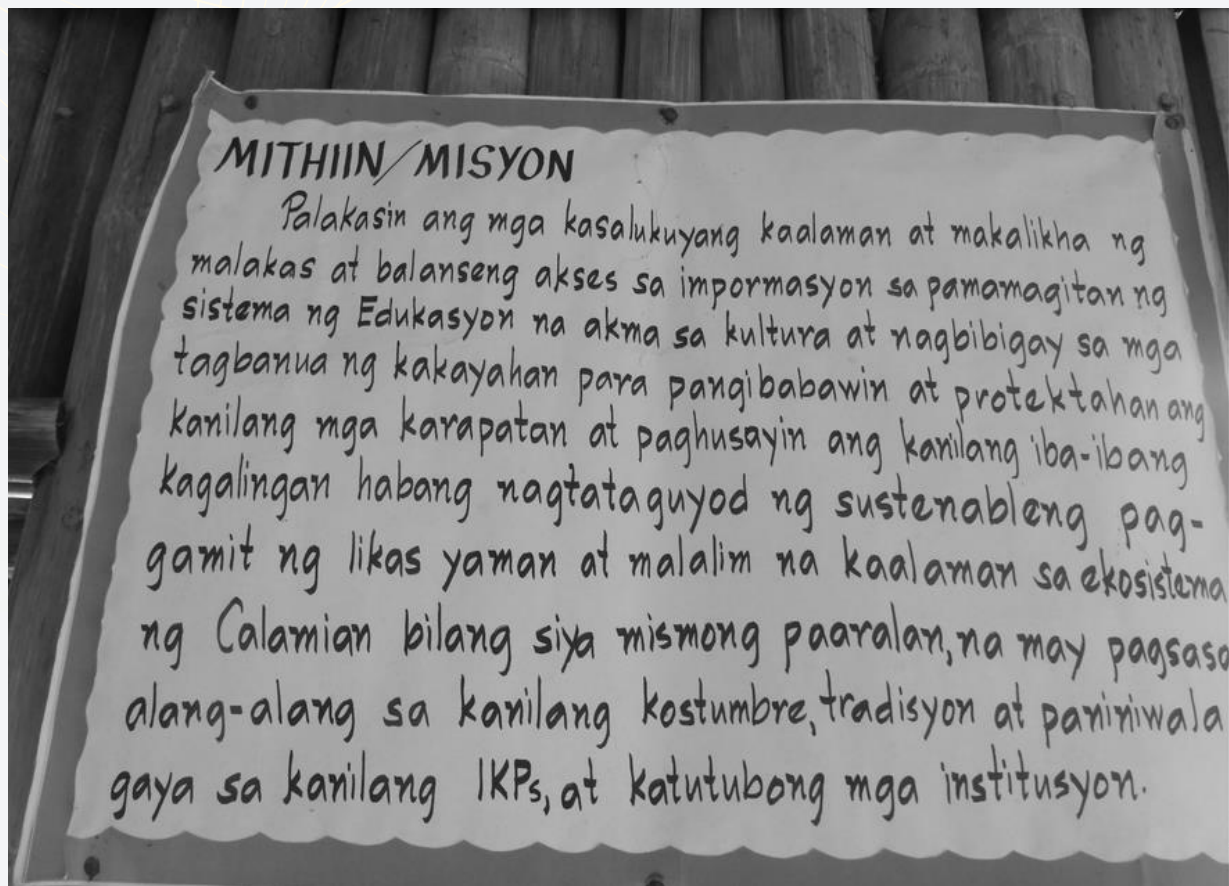 MITHIIN/MISYON
Palakasin ang mga kasalukuyang kaalaman at makalikha ng
malakas at balanseng akses sa impormasyon sa pamamagitan ng
sistema ng Edukasyon na akma sa kultura at nagbibigay sa mga
tagbanua ng kakayahan para pangibabawin at protektahan ang
kanilang mga karapatan at paghusayin ang kanilang iba-ibang
kagalingan habang nagtataguyod ng sustenableng pag-
gamit ng likas yaman at malalim na kaalaman sa ekosistema
ng Calamian bilang siya mismong paaralan, na may pagsasa
alang-alang sa kanilang kostumbre, tradisyon at paniniwala
gaya sa kanilang IKPs, at katutubong mga institusyon.